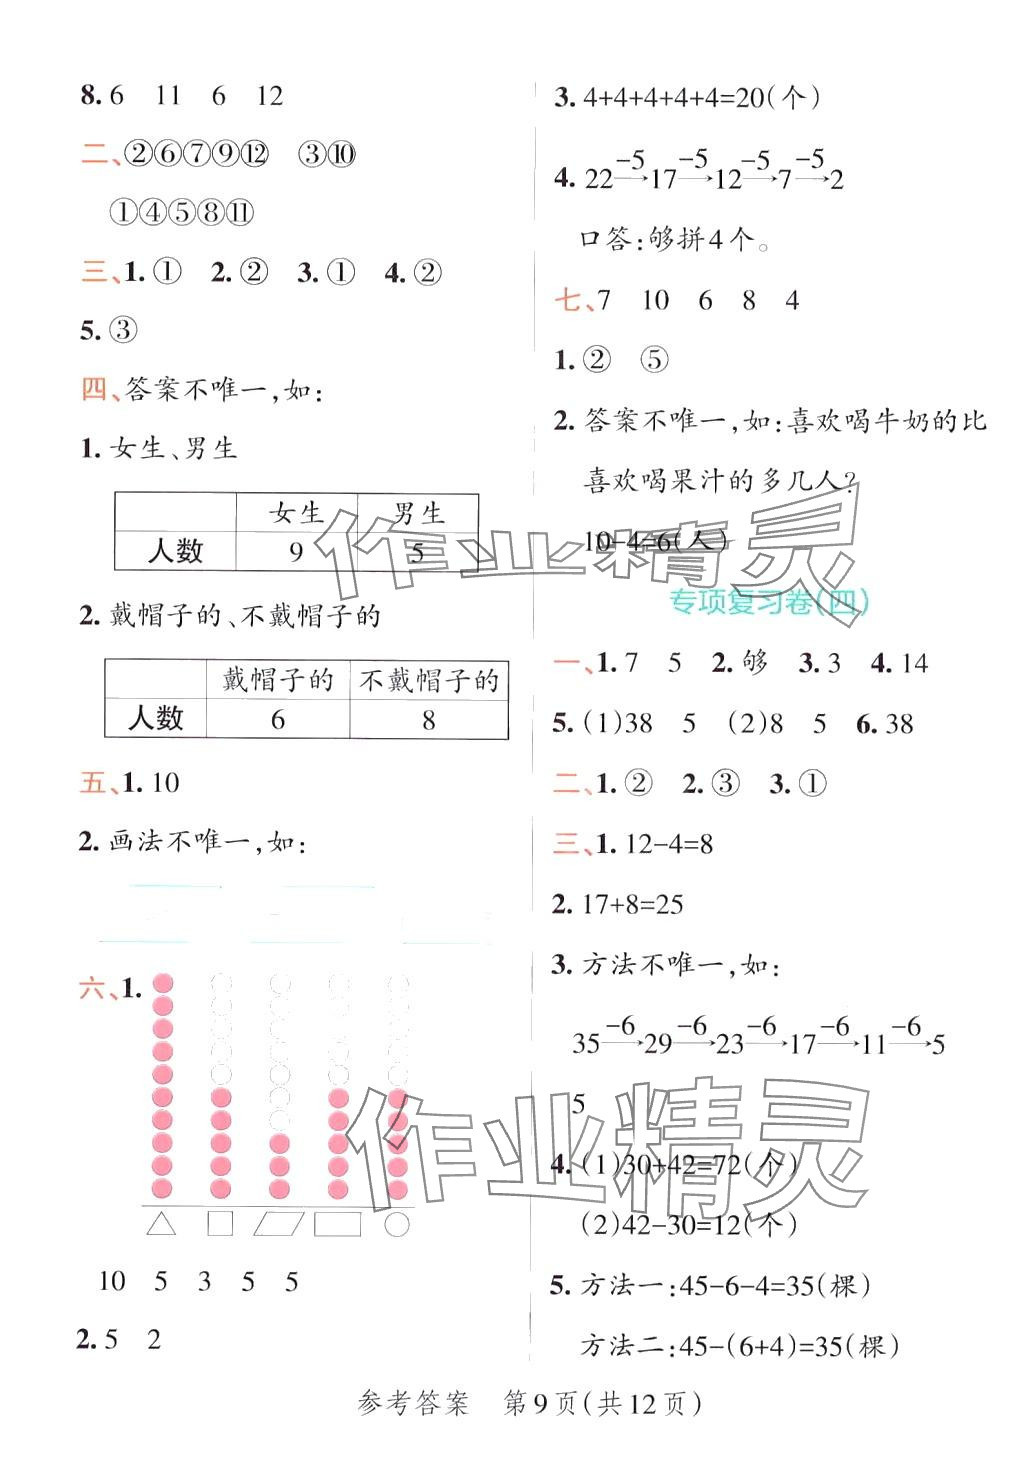 8. 6 11 6 12
二、②⑥⑦⑨⑫ ③⑩
①④⑤⑧⑪
三、1. ① 2. ② 3. ① 4. ②
5. ③
四、答案不唯一,如:
1. 女生、男生
女生 男生
人数 9 5
2. 戴帽子的、不戴帽子的
戴帽子的 不戴帽子的
人数 6 8
五、1. 10
2. 画法不唯一,如:
六、1.
10 5 3 5 5
2. 5 2
3. 4+4+4+4+4=20(个)
4. 22 -5→ 17 -5→ 12 -5→ 7 -5→ 2
口答:够拼4个。
七、7 10 6 8 4
1. ② ⑤
2. 答案不唯一,如:喜欢喝牛奶的比
喜欢喝果汁的多几人?
10-4=6(人)
专项复习卷(四)
一、1. 7 5 2. 够 3. 3 4. 14
5. (1)38 5 (2)8 5 6. 38
二、1. ② 2. ③ 3. ①
三、1. 12-4=8
2. 17+8=25
3. 方法不唯一,如:
35 -6→ 29 -6→ 23 -6→ 17 -6→ 11 -6→ 5
5
4. (1)30+42=72(个)
(2)42-30=12(个)
5. 方法一:45-6-4=35(棵)
方法二:45-(6+4)=35(棵)
参考答案 第9页(共12页)
作业精灵
作业精灵